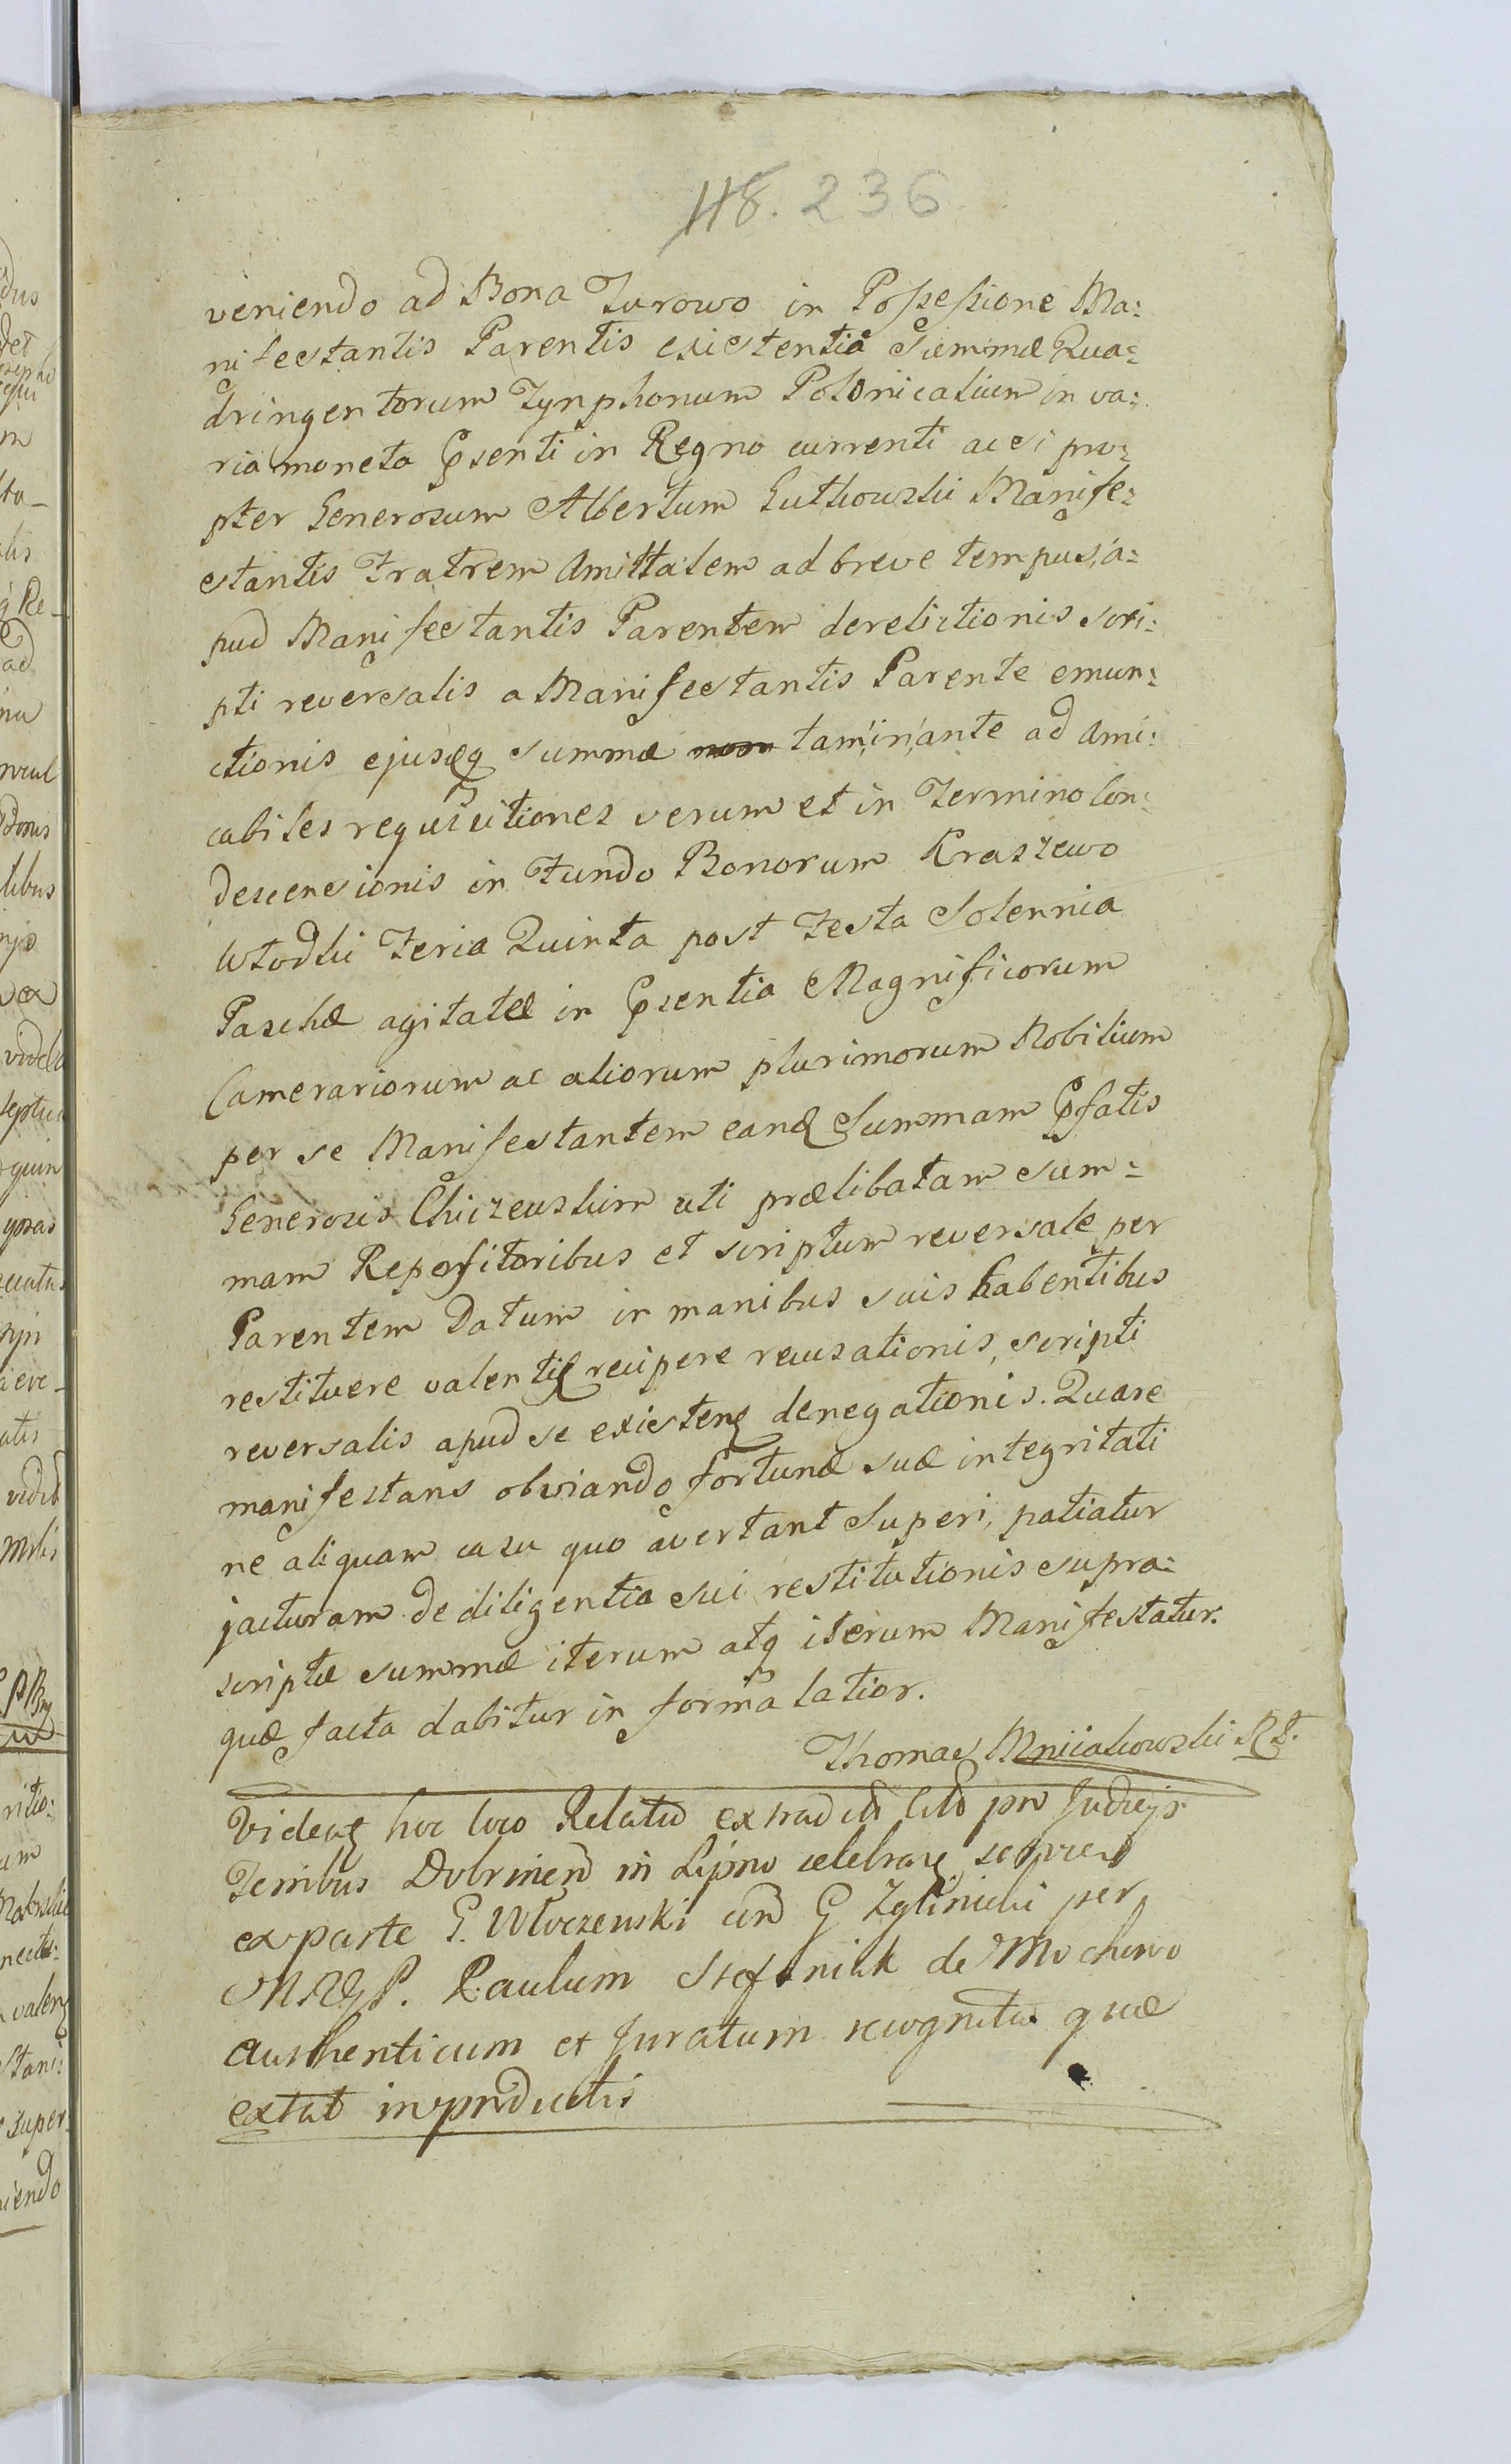 118. 236
veniendo ad Bona Turowo in Possessione Ma:
nifestantis Parentis existentia Summæ Qua:
dringentorum Tynphonum Polonicalium in va:
ria moneta Psenti in Regno currenti acsi pro:
pter Generosum Albertum Sutkowski Manife:
stantis Fratrem Amittalem ad breve tempus, a:
pud Manifestantis Parentem derelictionis scri:
pti reversalis a Manifestantis Parente emun:
ctionis ejusdq summæ non tam in ante ad Ami:
cabiles requisitiones verum et in Termino Con:
descensionis in Fundo Bonorum Kraszewo
Wtodki Feria Quinta post Festa Solennia
Paschæ agitatæ in Psentia Magnificorum
Camerariorum ac aliorum plurimorum Nobilium
per se Manifestantem eand Summam Pfatis
Generosis Chiczewskim uti prælibatam Sum:
mam Repositoribus et scriptum reversale per
Parentem Datum in manibus suis habentibus
restituere valentis recipere recusationis, scripti
reversalis apud se existen denegationis. Quare
manifestans obviando fortunæ suæ integritati
ne aliquam casu quo avertant Superi, patiatur
jacturam de diligentia sui restitutionis supra:
scriptæ summæ iterum atq iterum Manifestatur.
quæ facta dabitur in forma latior.
Thomas Mniiakowski
Videat hoc loco Relatio ex pn Judicijs
Terribus Dobrinen in Lipno celebran
ex parte G. Wloczewski cum G Zglinicki per
MRGP. Paulum Stefaniak de Mochowo
authenticum et Juratum recognita quæ
extat in productis